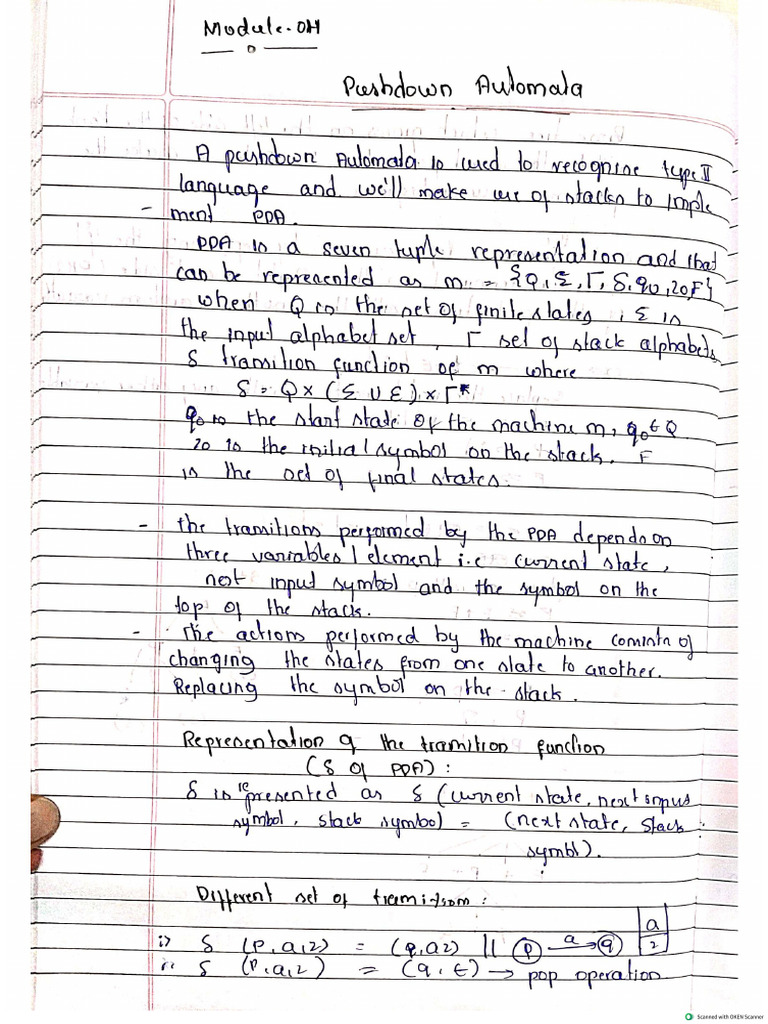 Module-04
Pushdown Automata
A pushdown Automata is used to recognise type II
language and we'll make use of stacks to imple
- ment PDA.
PDA is a seven tuple representation and that
can be represented as m = {Q, Σ, Γ, δ, q0, z0, F}
when Q is the set of finite states, Σ is
the input alphabet set, Γ set of stack alphabets
δ transition function of m where
δ = Q × (Σ ∪ ε) × Γ*
q0 is the start state of the machine m, q0 ∈ Q
z0 is the initial symbol on the stack. F
is the set of final states.
- the transitions performed by the PDA depends on
three variables / element i.e current state,
next input symbol and the symbol on the
top of the stack.
- The actions performed by the machine consists of
changing the states from one state to another.
Replacing the symbol on the stack.
Representation of the transition function
(δ of PDA):
δ is represented as δ (current state, next input
symbol, stack symbol) = (next state, stack
symbl).
Different set of transitions:
i) δ (p, a, z) = (q, az) || p a→ q a z
ii δ (p, a, z) = (q, ε) → pop operation
Scanned with OKEN Scanner